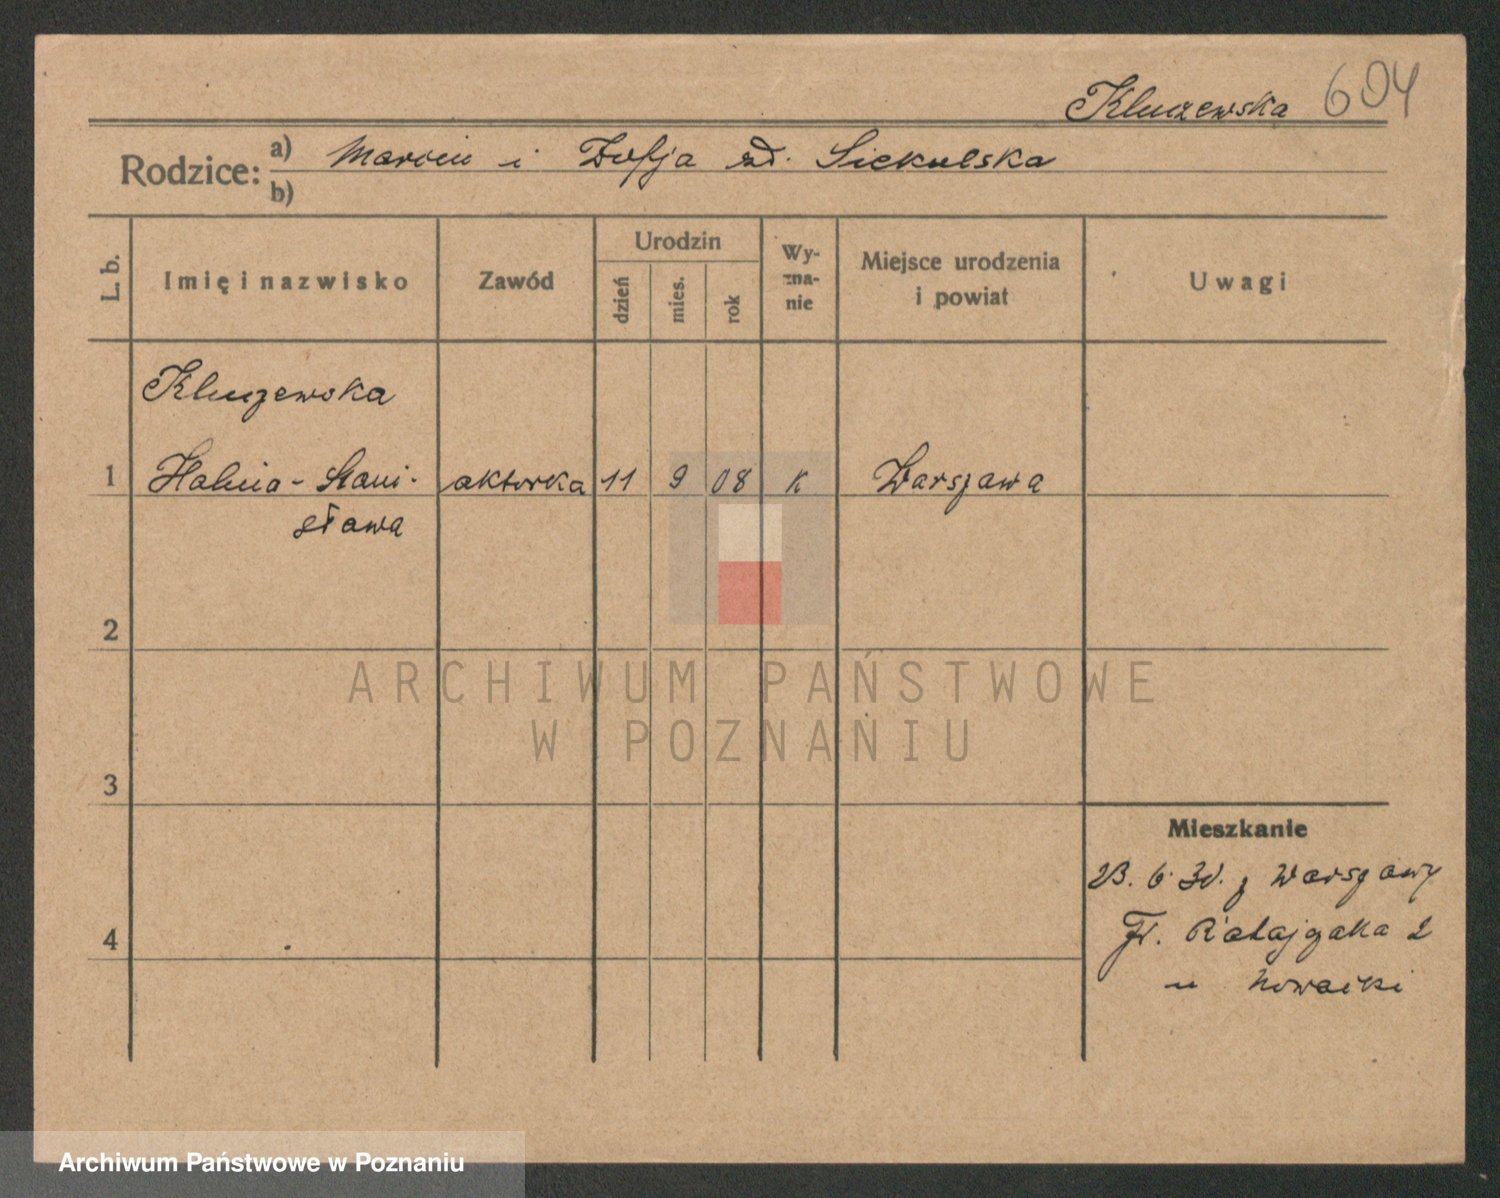 Kluczewska 604
Rodzice: a) Marcin i Zofja zd. Siekulska
b)
L. b. Imię i nazwisko Zawód Urodzin dzień mies. rok Wy-zna-nie Miejsce urodzenia i powiat Uwagi
Kluczewska
1 Halina - Stani- aktorka 11 9 08 k Warszawa
sława
2
ARCHIWUM PAŃSTWOWE
W POZNANIU
3
Mieszkanie
23. 6. 30. z Warszawy
4 Fr. Ratajczaka 2
u
Archiwum Państwowe w Poznaniu